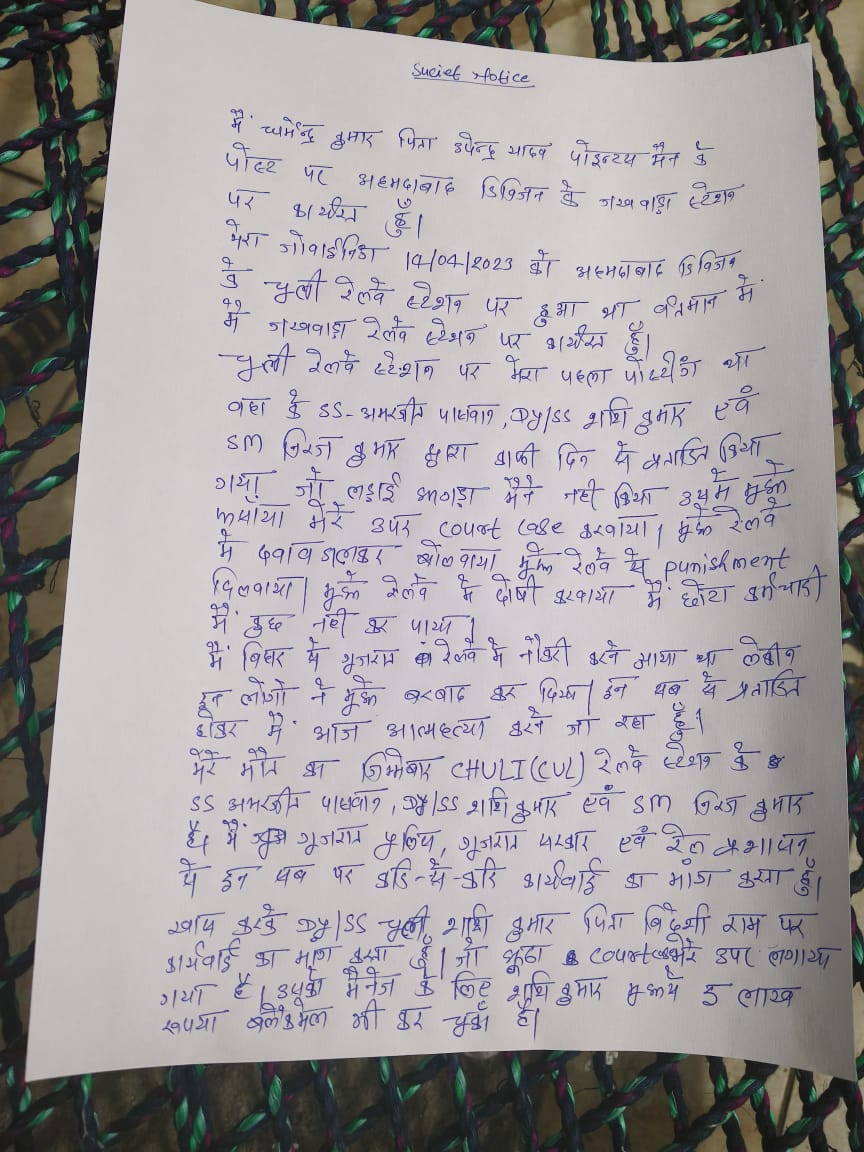 Suciet Notice
मैं धर्मेन्द्र कुमार पिता उपेन्द्र यादव पोइन्टस मैन के
पोस्ट पर अहमदाबाद डिविजन के जखवाड़ा स्टेशन
पर कार्यरत हूँ।
मेरा जोवाईनिंग 14/04/2023 को अहमदाबाद डिविजन
के चुली रेलवे स्टेशन पर हुआ था वर्तमान में
मैं जखवाड़ा रेलवे स्टेशन पर कार्यरत हूँ।
चुली रेलवे स्टेशन पर मेरा पहला पोस्टींग था
वहा के SS-अमरजीत पासवान, Dy/SS शशि कुमार एवं
SM निरज कुमार द्वारा काफी दिन से प्रताडित किया
गया। जो लड़ाई झगड़ा मैने नही किया उसमे मुझे
फसाया मेरे उपर court case करवाया। मुझे रेलवे
मे दवाव डालकर बोलवाया मुझे रेलवे से punishment
दिलवाया। मुझे रेलवे मे दोषी करवाया मैं छोटा कर्मचारी
मैं कुछ नही कर पाया।
मैं बिहार से गुजरात रेलवे मे नौकरी करने आया था लेकीन
इन लोगो ने मुझे बरबाद कर दिया। इन सब से प्रताडित
होकर मैं आज आत्महत्या करने जा रहा हूँ।
मेरे मौत का जिमेबार CHULI(CUL) रेलवे स्टेशन के
SS अमरजीत पासवान, Dy/SS शशि कुमार एवं SM निरज कुमार
है। मैं गुजरात पुलिस, गुजरात सरकार एवं रेल प्रशासन
से इन सब पर कडि-से-करि कार्यवाई का मांग करता हूँ।
खास करके Dy/SS चुली शशि कुमार पिता बिदेशी राम पर
कार्यवाई का मांग करता हूँ। जो झूठा court मेरे उपर लगाया
गया है। उसको मैनेज के लिए शशि कुमार मुझसे 5 लाख
रूपया बलैकमेल भी कर चुका है।